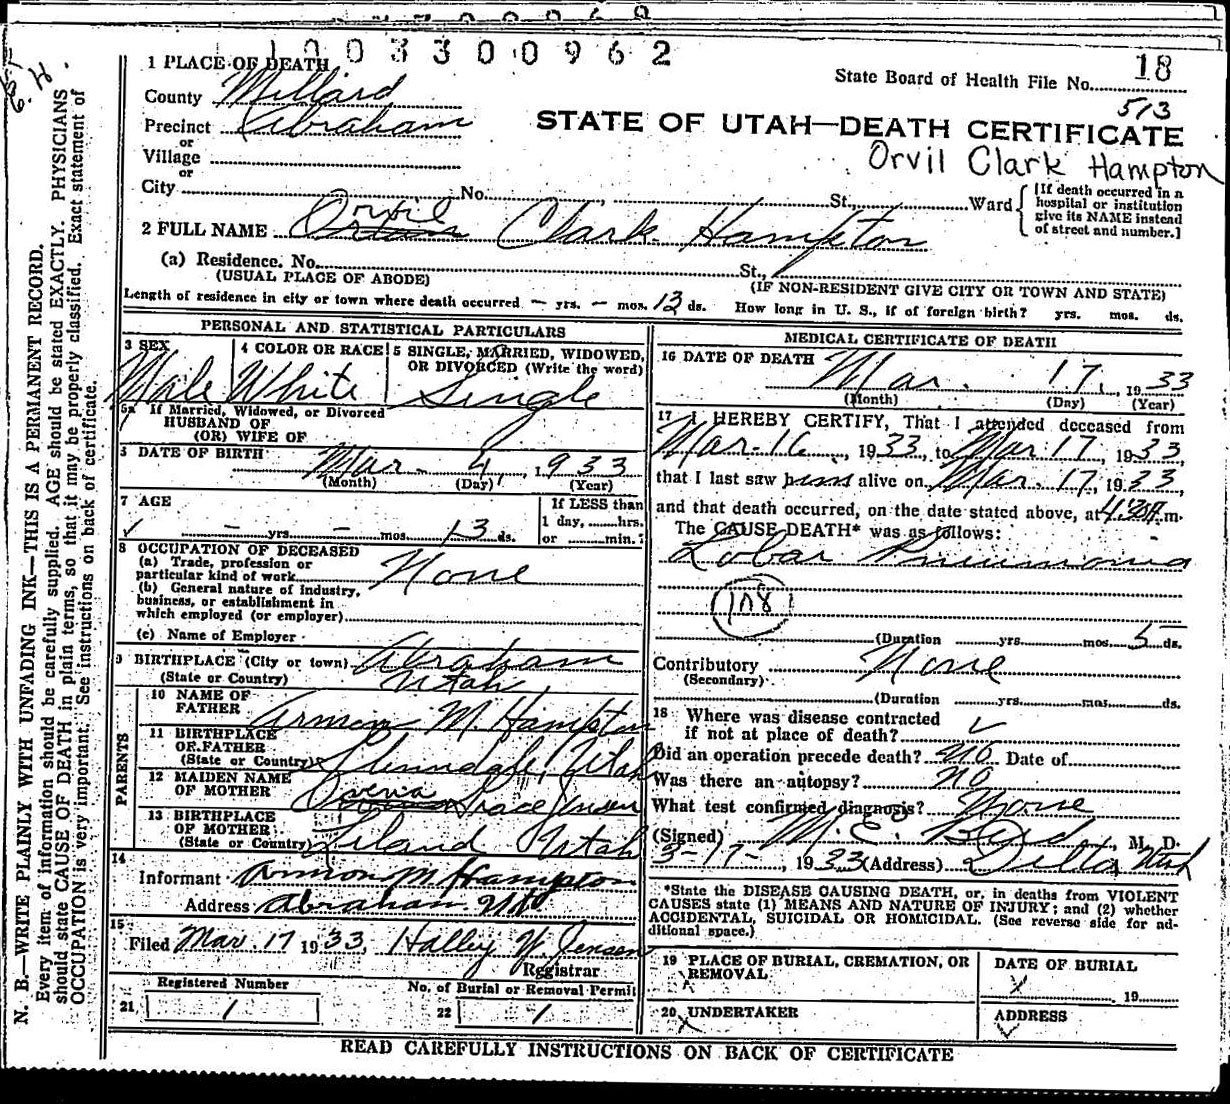 1003300962
1 PLACE OF DEATH
State Board of Health File No. 18
County Millard
513
Precinct Abraham
STATE OF UTAH—DEATH CERTIFICATE
or
Village
Orvil Clark Hampton
or
City No. St., Ward
[If death occurred in a
hospital or institution
give its NAME instead
of street and number.]
Orvil
2 FULL NAME Clark Hampton
(a) Residence. No. St.,
(USUAL PLACE OF ABODE) (IF NON-RESIDENT GIVE CITY OR TOWN AND STATE)
Length of residence in city or town where death occurred — yrs. — mos. 13 ds. How long in U. S., if of foreign birth? yrs. mos. ds.
PERSONAL AND STATISTICAL PARTICULARS
3 SEX 4 COLOR OR RACE 5 SINGLE, MARRIED, WIDOWED,
OR DIVORCED (Write the word)
Male White Single
5a If Married, Widowed, or Divorced
HUSBAND OF
(OR) WIFE OF
6 DATE OF BIRTH Mar. 4, 1933
(Month) (Day) (Year)
7 AGE If LESS than
1 day, hrs.
✓ — yrs. — mos. 13 ds. or min.?
8 OCCUPATION OF DECEASED
(a) Trade, profession or
particular kind of work None
(b) General nature of industry,
business, or establishment in
which employed (or employer)
(c) Name of Employer
9 BIRTHPLACE (City or town) Abraham
(State or Country) Utah
PARENTS
10 NAME OF
FATHER Armon M. Hampton
11 BIRTHPLACE
OF FATHER
(State or Country) Glenndale, Utah
12 MAIDEN NAME
OF MOTHER Grace Jensen
13 BIRTHPLACE
OF MOTHER
(State or Country) Leland Utah
14
Informant Armon M. Hampton
Address Abraham Ut
15
Filed Mar. 17 1933, Halley W. Jensen
Registrar
Registered Number No. of Burial or Removal Permit
21 1 22 1
MEDICAL CERTIFICATE OF DEATH
16 DATE OF DEATH Mar. 17, 1933
(Month) (Day) (Year)
17 I HEREBY CERTIFY, That I attended deceased from
Mar. 16, 1933, to Mar. 17, 1933,
that I last saw him alive on Mar. 17, 1933,
and that death occurred, on the date stated above, at m.
The CAUSE DEATH* was as follows:
Lobar Pneumonia
108
(Duration yrs. mos. 5 ds.
Contributory None
(Secondary)
(Duration yrs. mos. ds.
18 Where was disease contracted
if not at place of death? ✓
Did an operation precede death? no Date of
Was there an autopsy? no
What test confirmed diagnosis? None
(Signed) M. E. Bird, M. D.
3-17-, 1933 (Address) Delta Utah
*State the DISEASE CAUSING DEATH, or, in deaths from VIOLENT
CAUSES state (1) MEANS AND NATURE OF INJURY; and (2) whether
ACCIDENTAL, SUICIDAL OR HOMICIDAL. (See reverse side for ad-
ditional space.)
19 PLACE OF BURIAL, CREMATION, OR
REMOVAL
DATE OF BURIAL
19
20 UNDERTAKER ADDRESS
READ CAREFULLY INSTRUCTIONS ON BACK OF CERTIFICATE
N. B.—WRITE PLAINLY WITH UNFADING INK—THIS IS A PERMANENT RECORD.
Every item of information should be carefully supplied. AGE should be stated EXACTLY. PHYSICIANS
should state CAUSE OF DEATH in plain terms, so that it may be properly classified. Exact statement of
OCCUPATION is very important. See instructions on back of certificate.